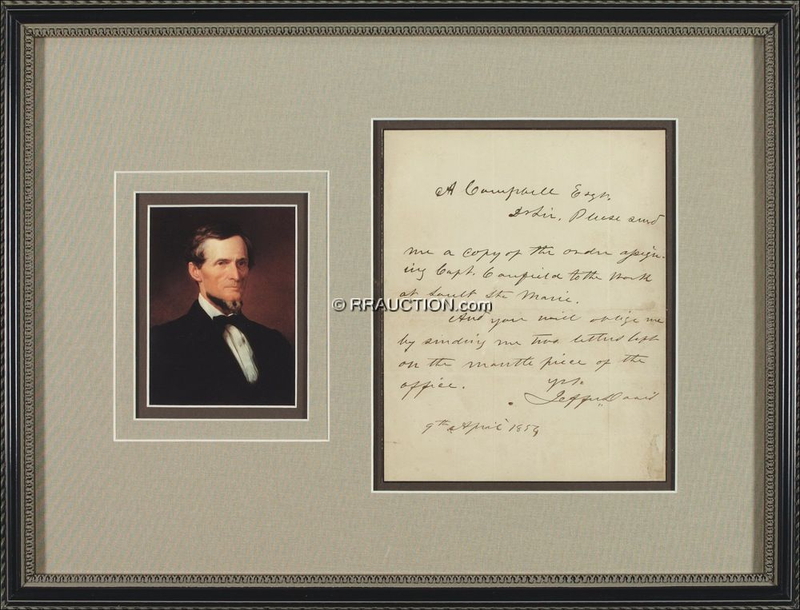 A Campbell Esqr.
Dr Sir, Please send
me a copy of the order assign-
ing Capt. Canfield to the work
at Sault Ste Marie.
© RRAUCTION.com
And you will oblige me
by sending me two letters left
on the mantle piece of the
office.
yrs.
Jeffer. Davis
9th April